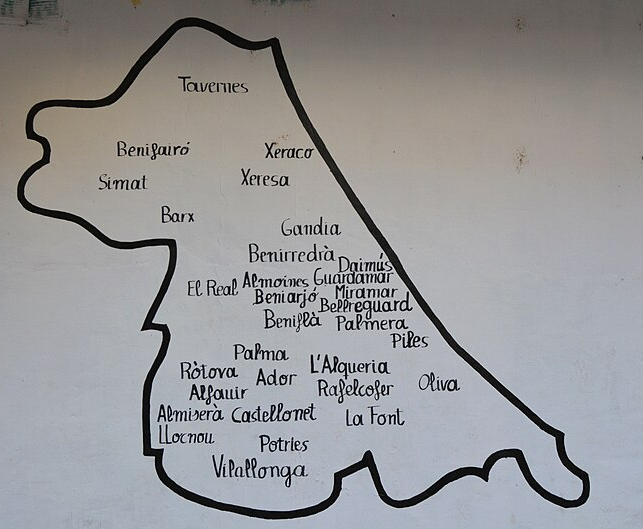 Tavernes
Benifairó
Xeraco
Simat
Xeresa
Barx
Gandia
Benirredrà
Daimús
El Real
Almoines
Guardamar
Beniarjó
Miramar
Bellreguard
Beniflà
Palmera
Piles
Palma
Ròtova
Ador
L'Alqueria
Alfauir
Rafelcofer
Oliva
Almiserà
Castellonet
La Font
Llocnou
Potries
Vilallonga